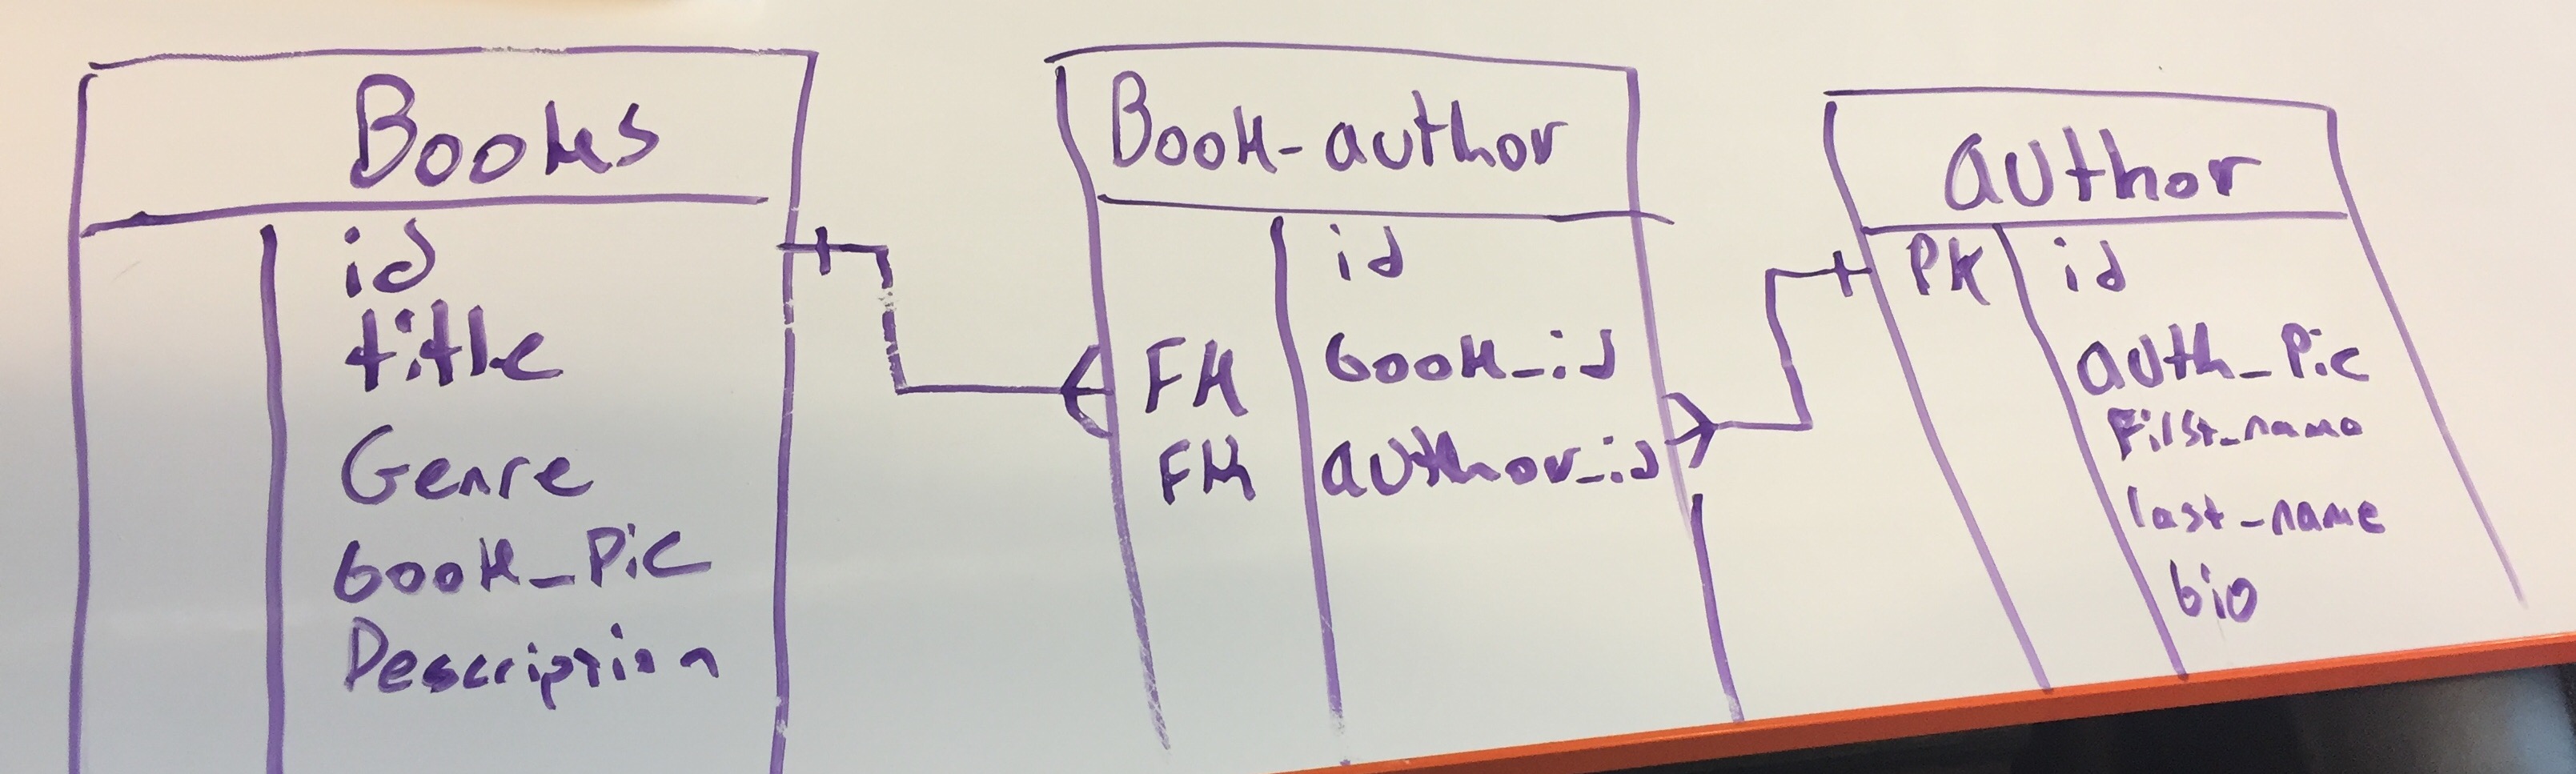 Books
id
title
Genre
book_Pic
Description
Book-author
id
FK book_id
FK author_id
author
PK id
auth_Pic
First_name
last_name
bio